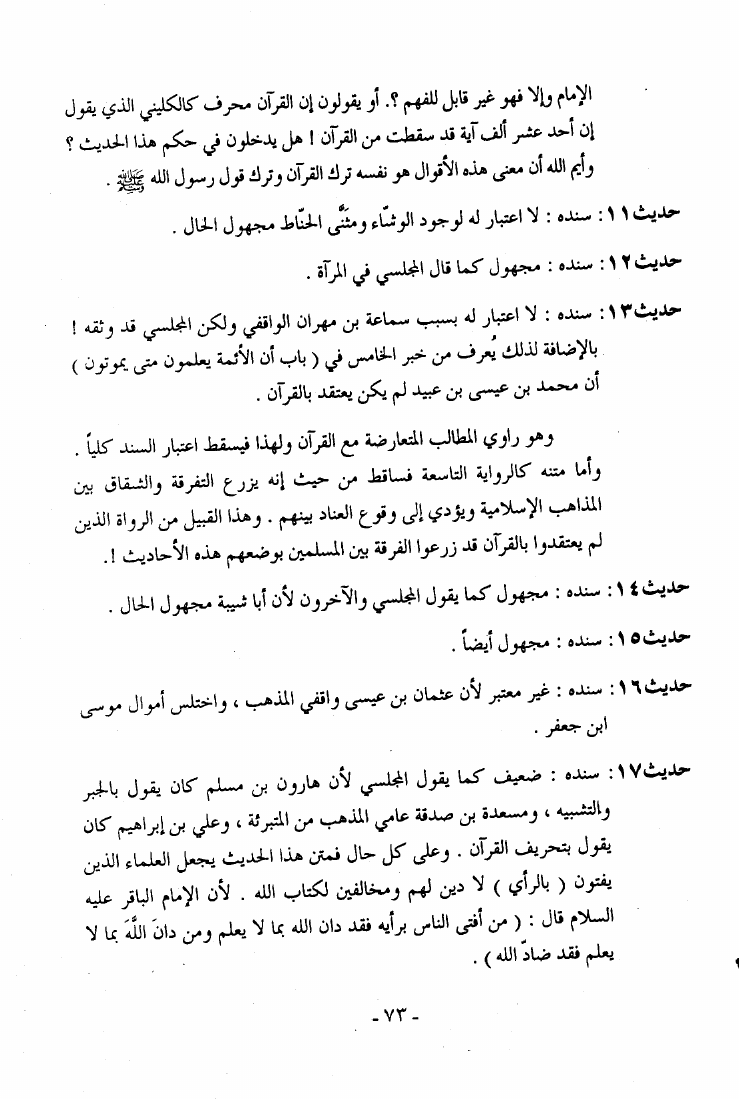 الإمام وإلا فهو غير قابل للفهم ؟. أو يقولون إن القرآن محرف كالكليني الذي يقول
إن أحد عشر ألف آية قد سقطت من القرآن ! هل يدخلون في حكم هذا الحديث ؟
وأيم الله أن معنى هذه الأقوال هو نفسه ترك القرآن وترك قول رسول الله ﷺ .
حديث١١: سنده : لا اعتبار له لوجود الوشّاء ومثَنَّى الحنّاط مجهول الحال .
حديث١٢: سنده : مجهول كما قال المجلسي في المرآة .
حديث١٣: سنده : لا اعتبار له بسبب سماعة بن مهران الواقفي ولكن المجلسي قد وثقه !
بالإضافة لذلك يُعرف من خبر الخامس في ( باب أن الأئمة يعلمون متى يموتون )
أن محمد بن عيسى بن عبيد لم يكن يعتقد بالقرآن .
وهو راوي المطالب المتعارضة مع القرآن ولهذا فيسقط اعتبار السند كلياً .
وأما متنه كالرواية التاسعة فساقط من حيث إنه يزرع التفرقة والشقاق بين
المذاهب الإسلامية ويؤدي إلى وقوع العناد بينهم . وهذا القبيل من الرواة الذين
لم يعتقدوا بالقرآن قد زرعوا الفرقة بين المسلمين بوضعهم هذه الأحاديث !.
حديث١٤: سنده : مجهول كما يقول المجلسي والآخرون لأن أبا شيبة مجهول الحال .
حديث١٥: سنده : مجهول أيضاً .
حديث١٦: سنده : غير معتبر لأن عثمان بن عيسى واقفي المذهب ، واختلس أموال موسى
ابن جعفر .
حديث١٧: سنده : ضعيف كما يقول المجلسي لأن هارون بن مسلم كان يقول بالجبر
والتشبيه ، ومسعدة بن صدقة عامي المذهب من المتبرئة ، وعلي بن إبراهيم كان
يقول بتحريف القرآن . وعلى كل حال فمتن هذا الحديث يجعل العلماء الذين
يفتون ( بالرأي ) لا دين لهم ومخالفين لكتاب الله . لأن الإمام الباقر عليه
السلام قال : ( من أفتى الناس برأيه فقد دان الله بما لا يعلم ومن دانَ اللَّهَ بما لا
يعلم فقد ضادّ الله ) .
- ٧٣ -